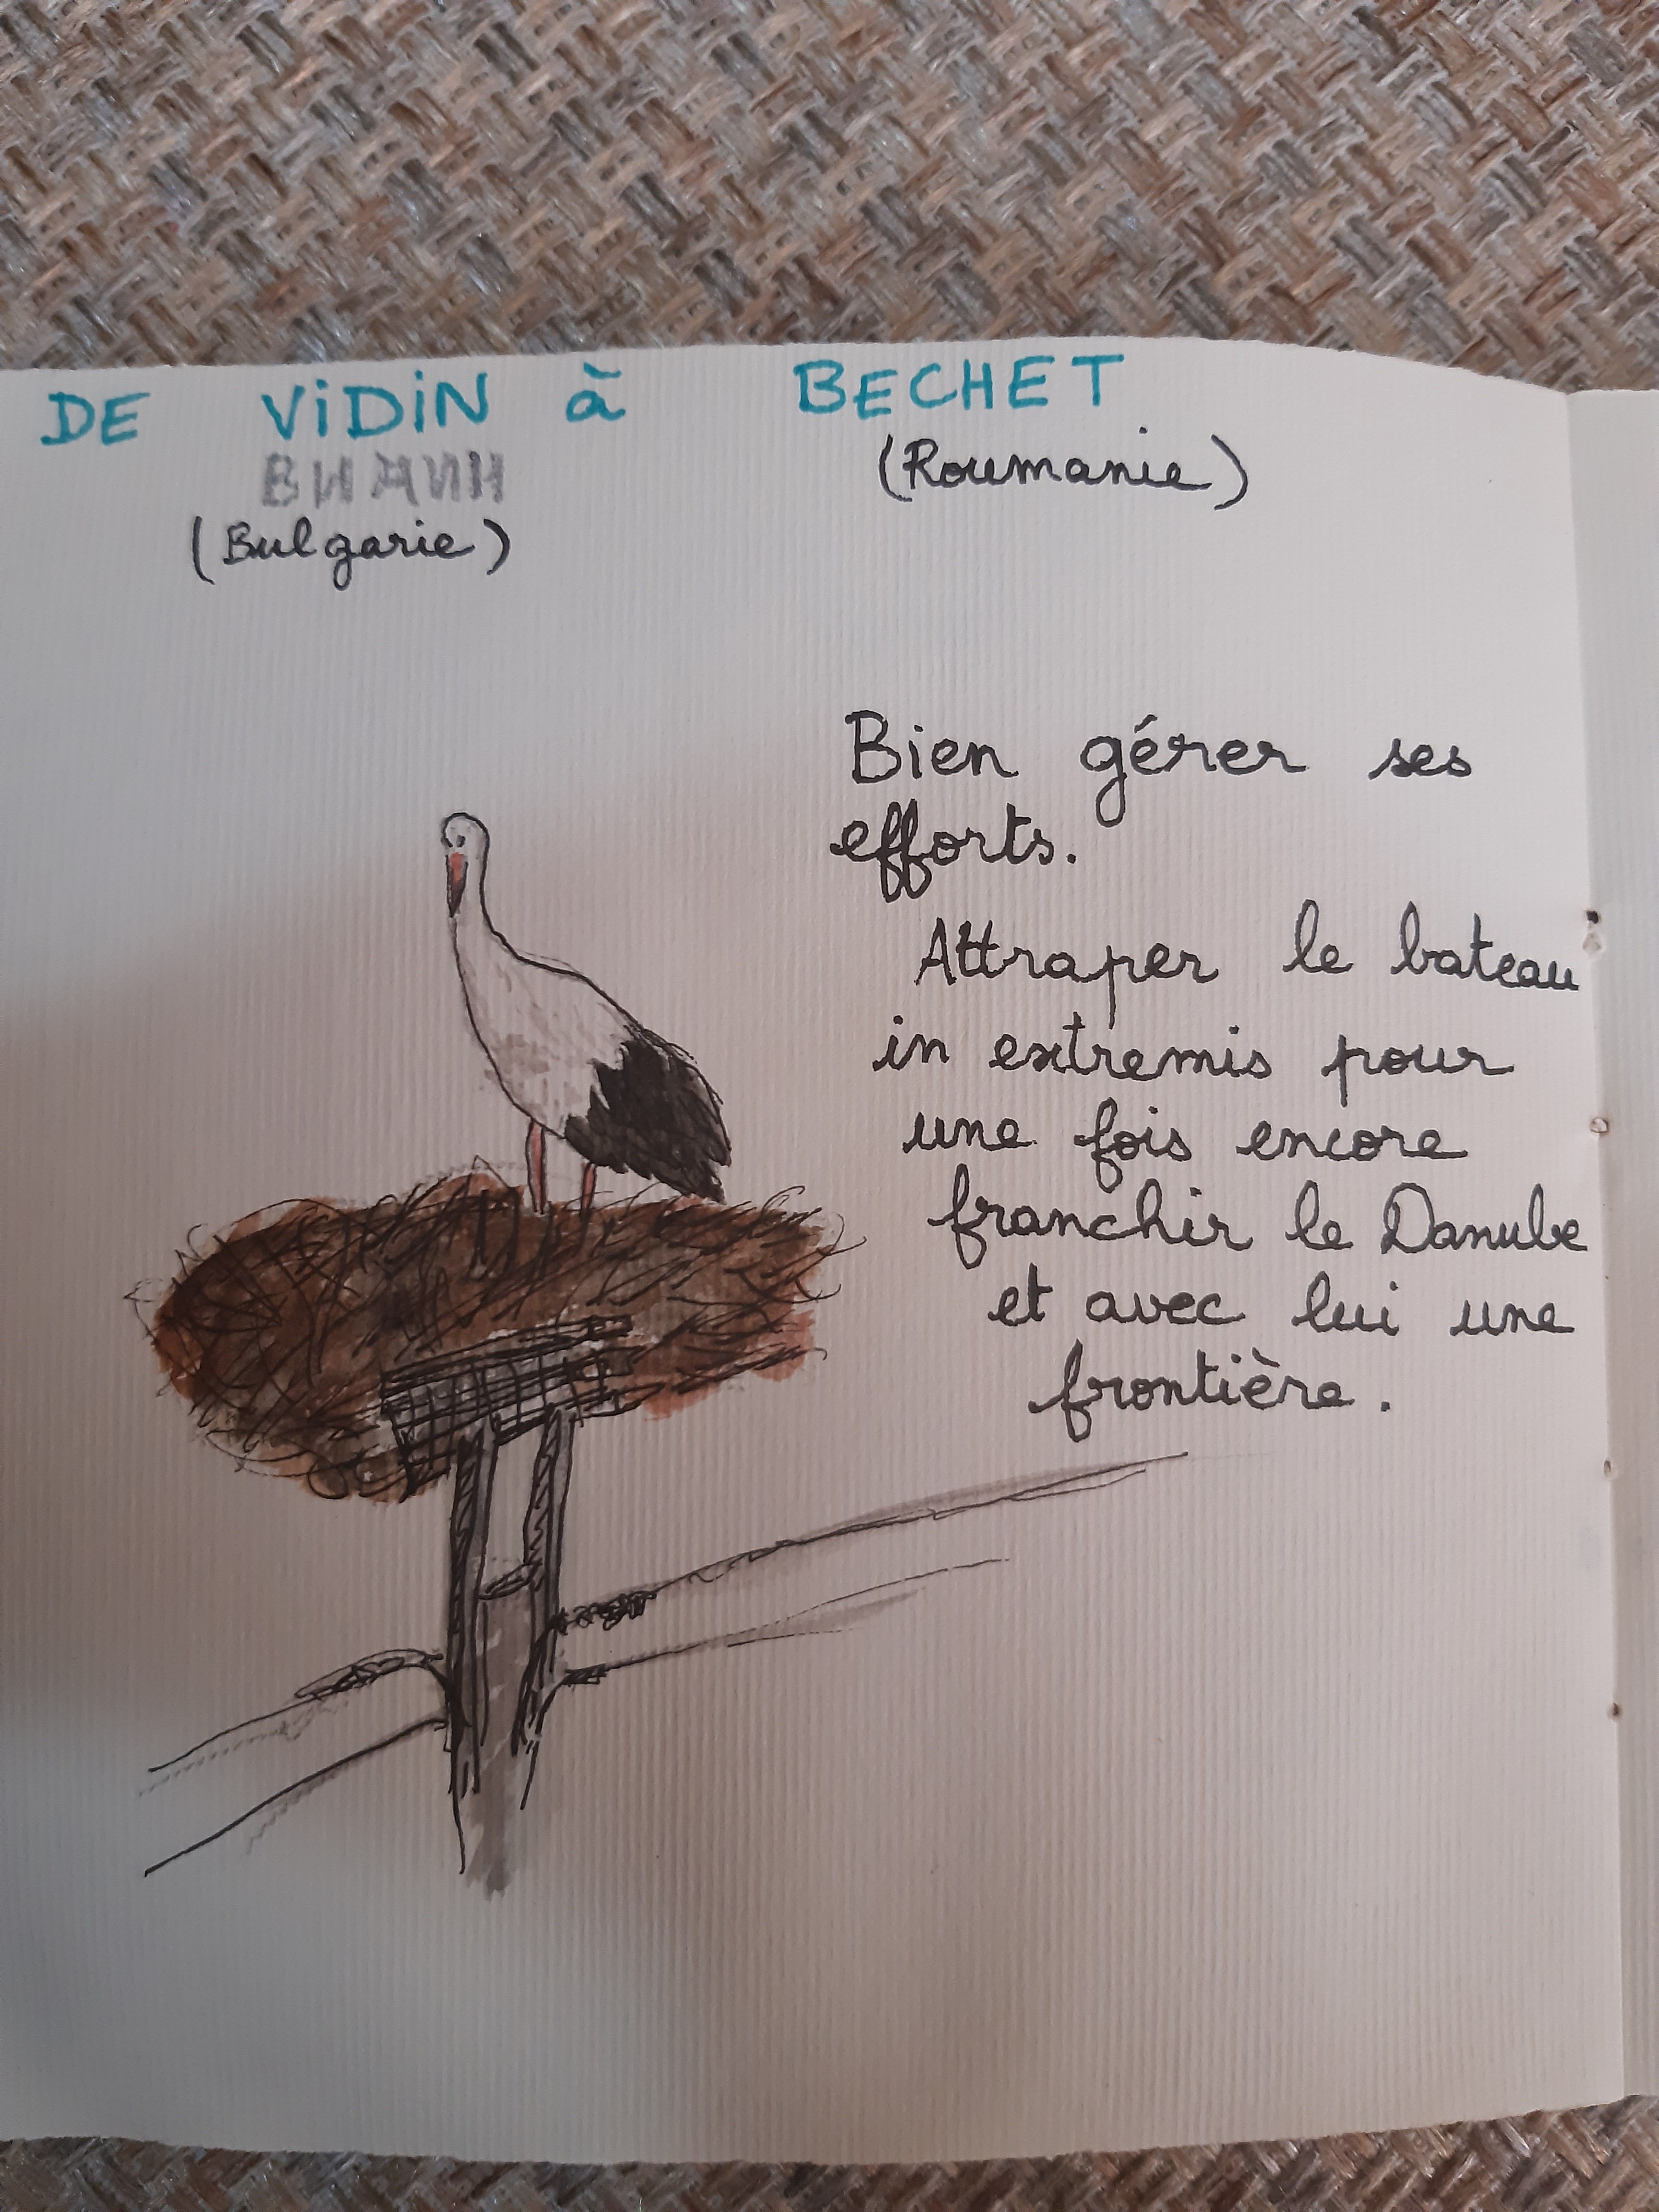 DE ViDiN à BECHET
ВИДИН (Roumanie)
(Bulgarie)
Bien gérer ses
efforts.
Attraper le bateau
in extremis pour
une fois encore
franchir le Danube
et avec lui une
frontière.